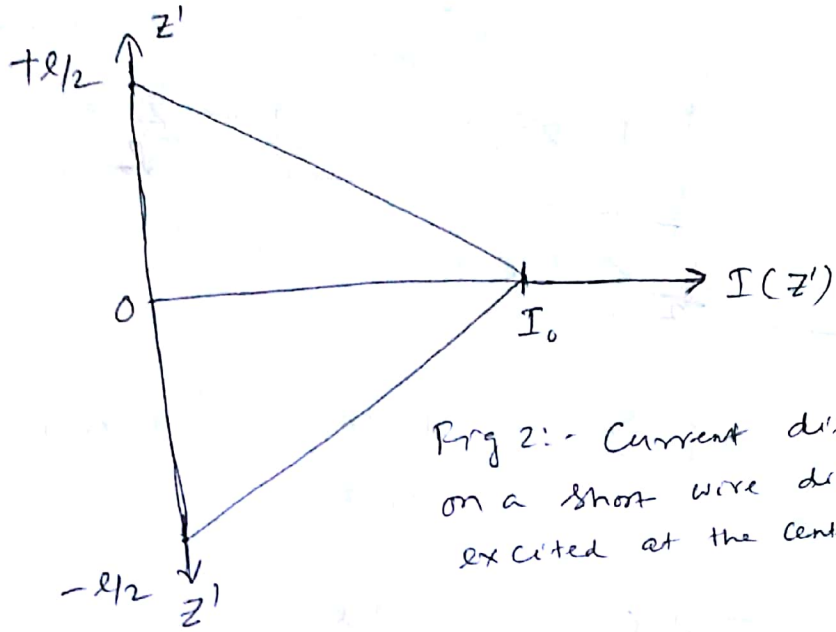 Z'
+l/2
I(Z')
0
I₀
Fig 2:- Current di
on a short wire di
excited at the cent
-l/2
Z'